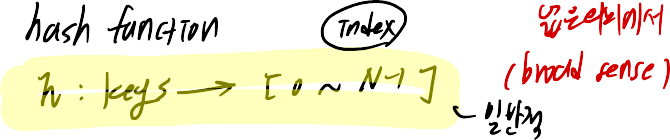 hash function
Index
넓은의미에서
(broad sense)
h : keys → [0 ~ N-1]
일반적